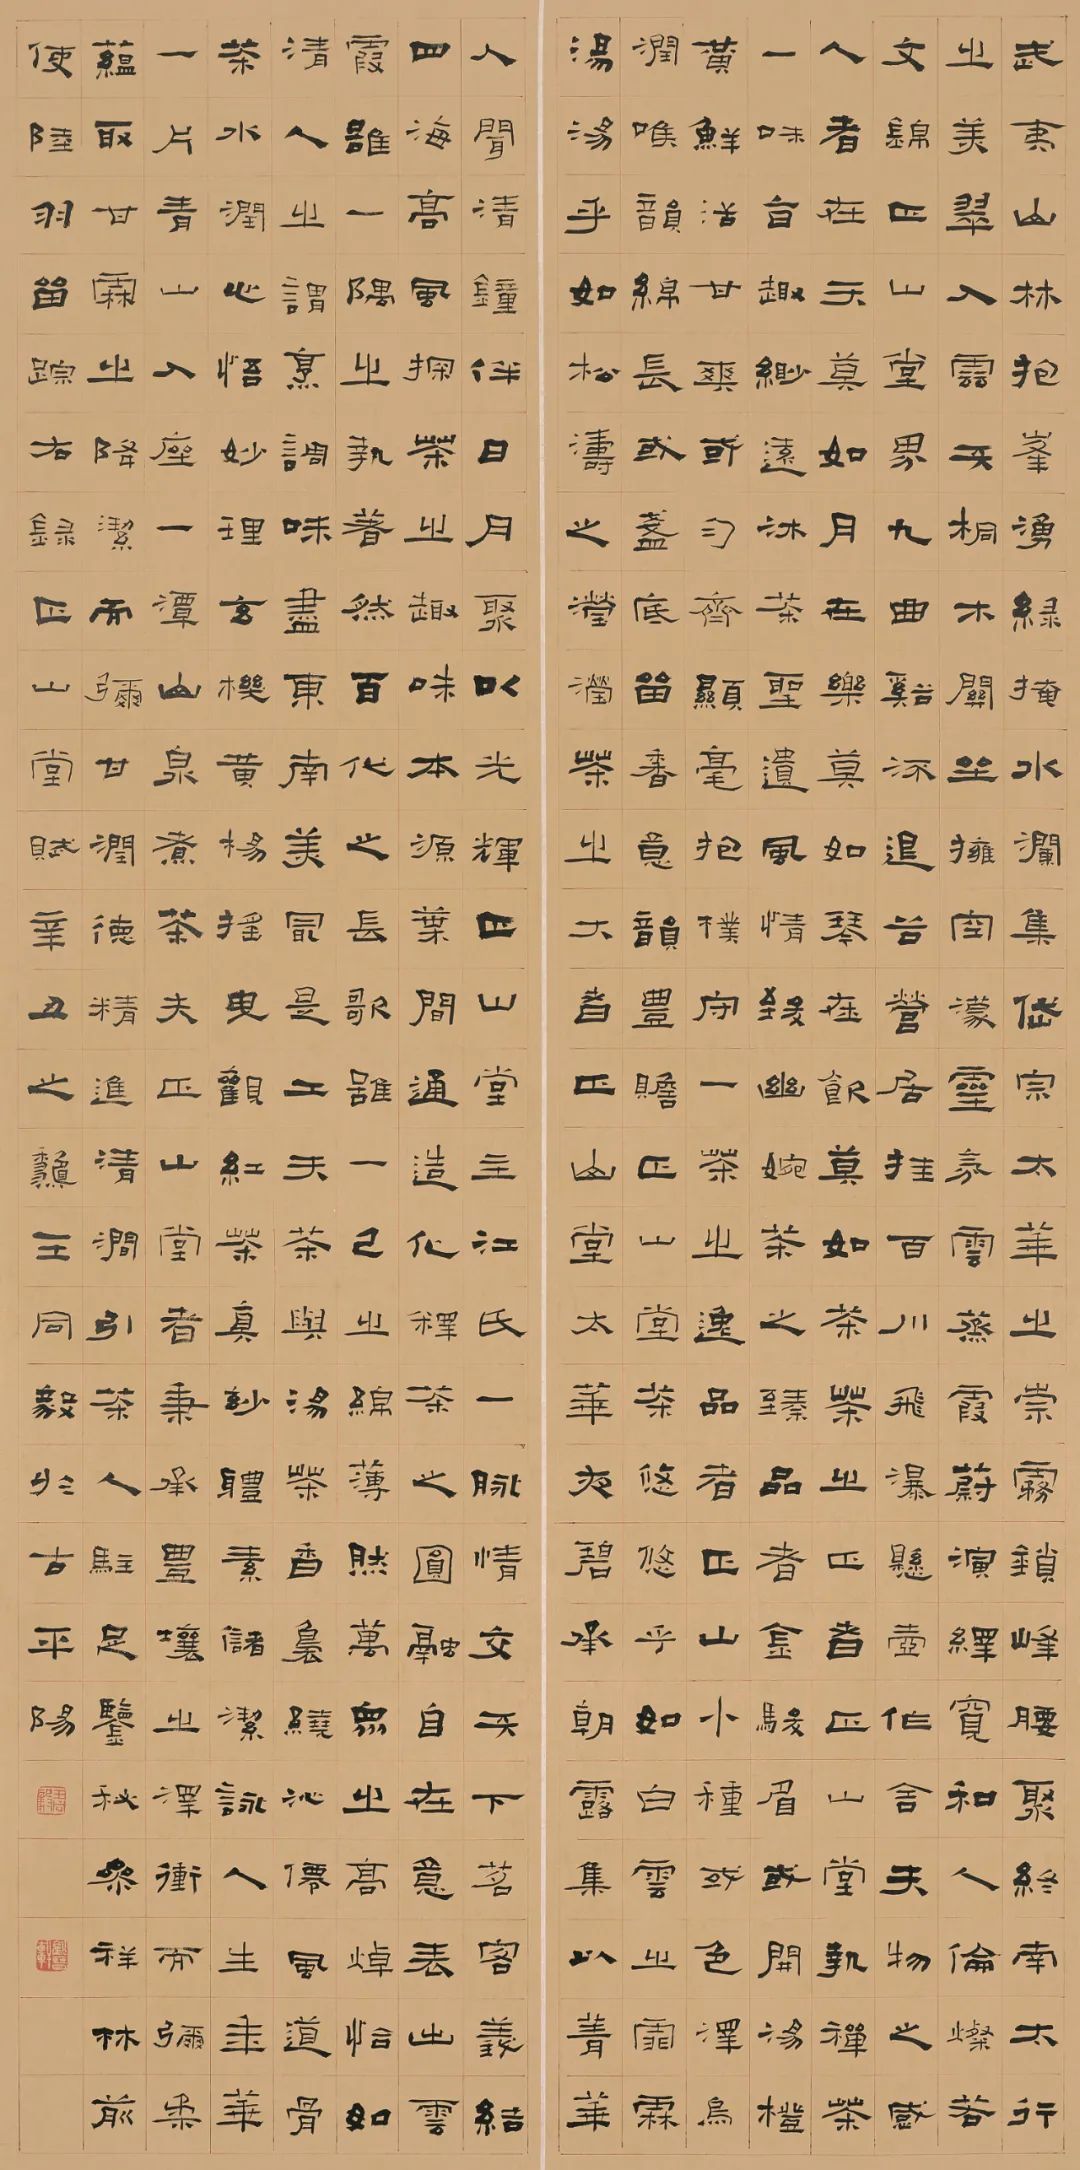 武夷山林抱峯湧綠掩水瀾集岱宗太華之崇霧鎖峰腰聚終南太行
之美翠入雲天桐木關坐擁空濛靈氛雲蒸霞蔚演繹寬和人倫燦若
文錦正山堂界九曲谿退谷營居挂百川飛瀑懸壺作舍夫物之感
人者在天莫如月在樂莫如琴在飲莫如茶茶之正者正山堂執禪茶
一味旨趣緲遠沐茶聖遺風情致幽婉茶之臻品者金駿眉或開湯橙
黃鮮活甘爽或勻齊顯毫抱樸守一茶之逸品者正山小種或色澤烏
潤唯韻綿長或盞底留香意韻豐贍正山堂茶悠悠乎如白雲之霖
湯湯乎如松濤之瀅瀅茶之大者正山堂太華夜碧承朝露集以菁華
人聞清鐘伴日月聚以光輝正山堂主江氏一脉情交天下茗客義結
四海高風探茶之趣味本源葉間通造化釋茶之圓融自在意表出雲
霞雖一隅之執著然百代之長歌雖一己之綿薄然萬衆之高焯怡如
清人之謂烹調味盡東南美最是工夫茶與湯茶香裊繞沁僊風道骨
茶水潤心悟妙理玄機黃楊搖曳觀紅茶真妙體素儲潔詠人生年華
一片青山入座一潭山泉煮茶夫正山堂者秉承豐壤之澤衝而彌柔
蘊取甘霖之降潔而彌甘潤德精進清澗引茶人駐足鑒秘參祥林前
使陸羽留蹤右錄正山堂賦辛丑之龝王同毅於古平陽